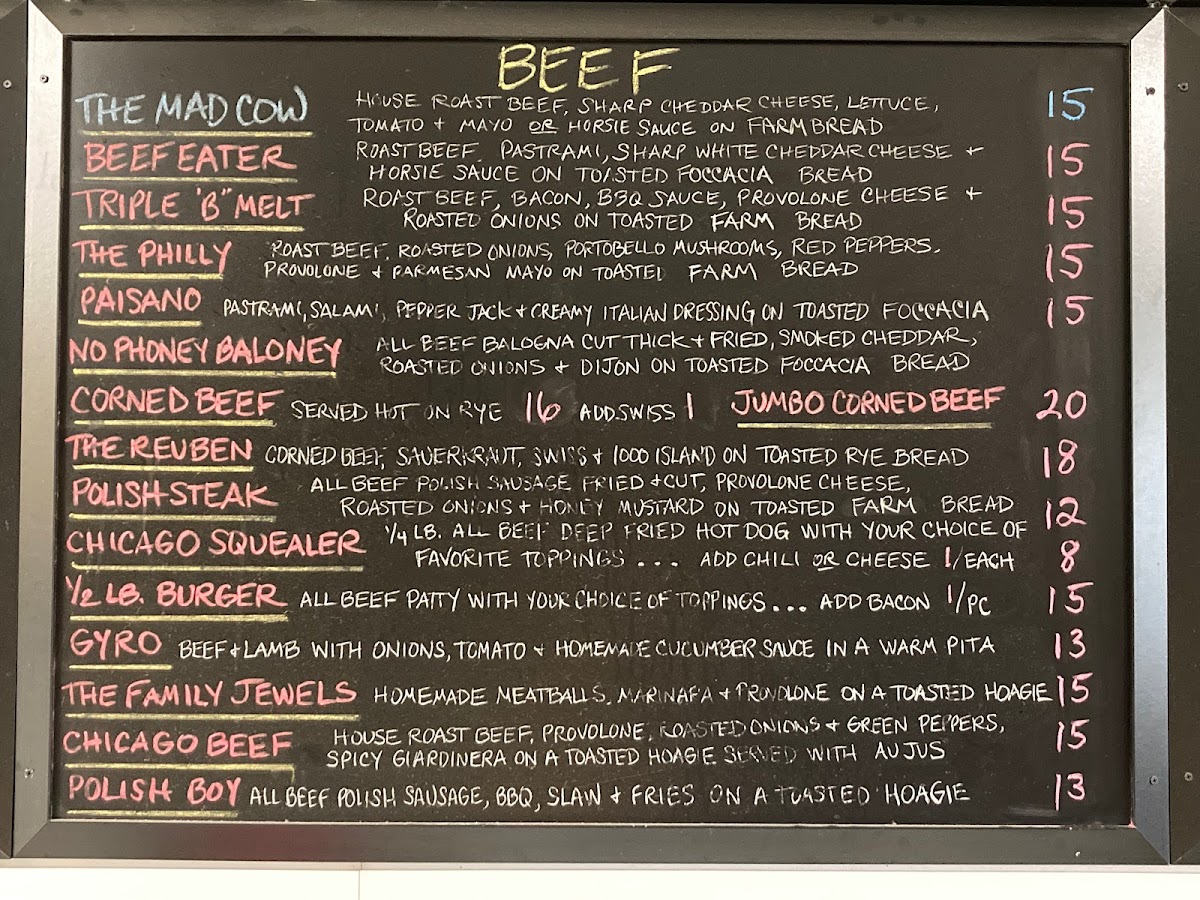 BEEF
THE MAD COW HOUSE ROAST BEEF, SHARP CHEDDAR CHEESE, LETTUCE, 15
TOMATO + MAYO OR HORSIE SAUCE ON FARM BREAD
BEEF EATER ROAST BEEF, PASTRAMI, SHARP WHITE CHEDDAR CHEESE + 15
HORSIE SAUCE ON TOASTED FOCCACIA BREAD
TRIPLE "B" MELT ROAST BEEF, BACON, BBQ SAUCE, PROVOLONE CHEESE + 15
ROASTED ONIONS ON TOASTED FARM BREAD
THE PHILLY ROAST BEEF, ROASTED ONIONS, PORTOBELLO MUSHROOMS, RED PEPPERS, 15
PROVOLONE + PARMESAN MAYO ON TOASTED FARM BREAD
PAISANO PASTRAMI, SALAMI, PEPPER JACK + CREAMY ITALIAN DRESSING ON TOASTED FOCCACIA 15
NO PHONEY BALONEY ALL BEEF BALOGNA CUT THICK + FRIED, SMOKED CHEDDAR,
ROASTED ONIONS + DIJON ON TOASTED FOCCACIA BREAD
CORNED BEEF SERVED HOT ON RYE 16 ADD SWISS 1 JUMBO CORNED BEEF 20
THE REUBEN CORNED BEEF, SAUERKRAUT, SWISS + 1000 ISLAND ON TOASTED RYE BREAD 18
POLISH STEAK ALL BEEF POLISH SAUSAGE FRIED + CUT, PROVOLONE CHEESE,
ROASTED ONIONS + HONEY MUSTARD ON TOASTED FARM BREAD 12
CHICAGO SQUEALER 1/4 LB. ALL BEEF DEEP FRIED HOT DOG WITH YOUR CHOICE OF
FAVORITE TOPPINGS... ADD CHILI OR CHEESE 1/EACH 8
1/2 LB. BURGER ALL BEEF PATTY WITH YOUR CHOICE OF TOPPINGS... ADD BACON 1/PC 15
GYRO BEEF + LAMB WITH ONIONS, TOMATO + HOMEMADE CUCUMBER SAUCE IN A WARM PITA 13
THE FAMILY JEWELS HOMEMADE MEATBALLS, MARINARA + PROVOLONE ON A TOASTED HOAGIE 15
CHICAGO BEEF HOUSE ROAST BEEF, PROVOLONE, ROASTED ONIONS + GREEN PEPPERS, 15
SPICY GIARDINERA ON A TOASTED HOAGIE SERVED WITH AU JUS
POLISH BOY ALL BEEF POLISH SAUSAGE, BBQ, SLAW + FRIES ON A TOASTED HOAGIE 13